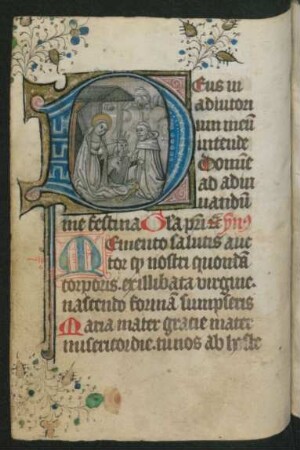 Deus in
adiutori
um meū
intende
Domine
ad adiu
uandū
me festina Gła pri Et ymꝰ
Memento salutis auc
tor qꝫ nostri quondā
corporis. ex illibata virgine.
nascendo formā sumpseris
Maria mater gracie mater
misericordie. tu nos ab hoste